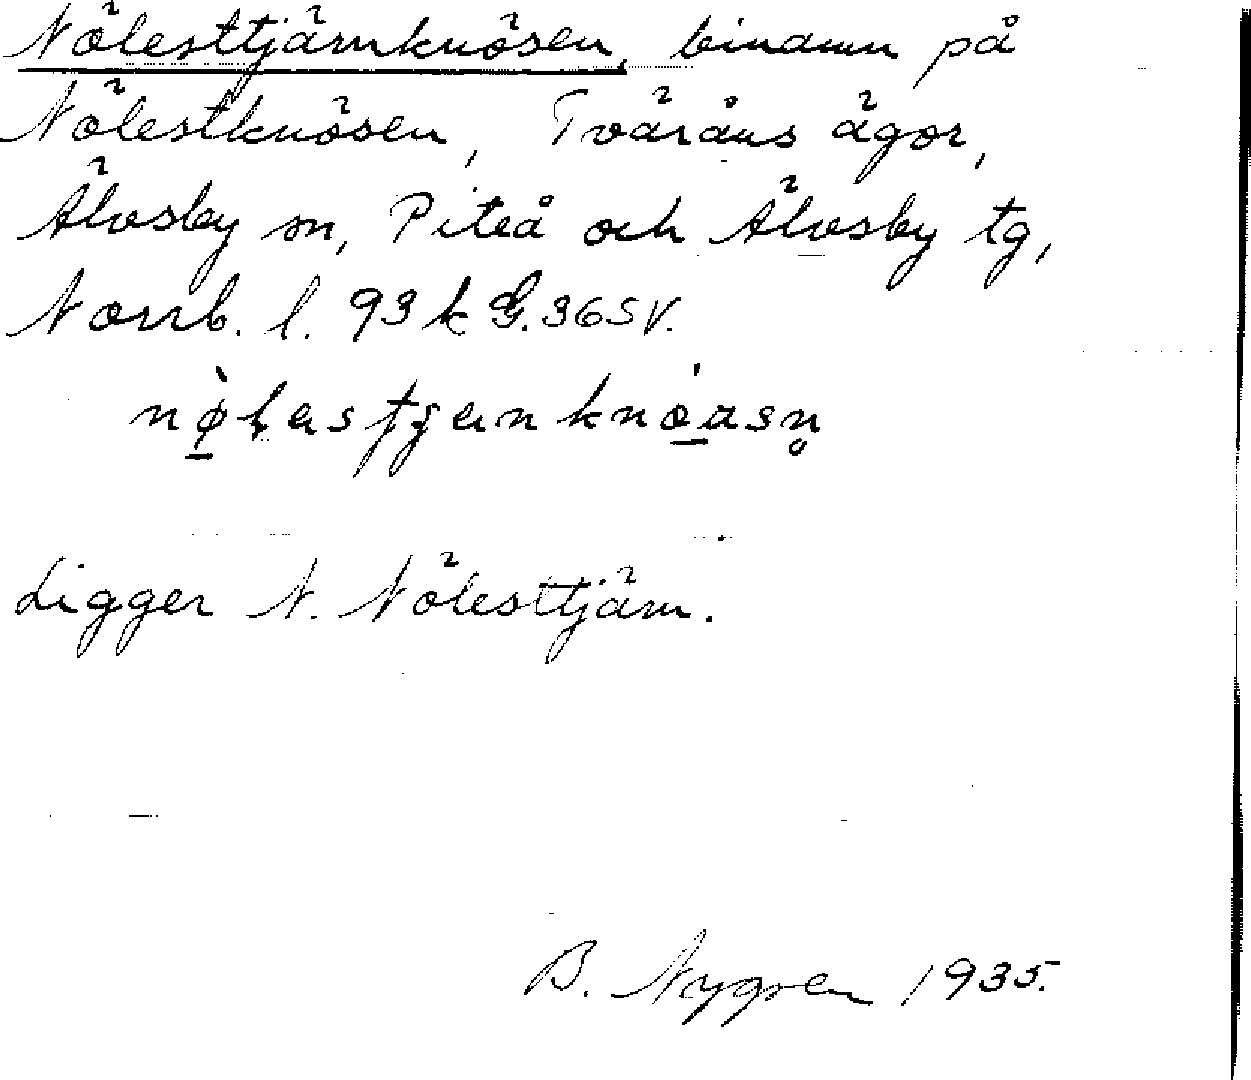 Nölesttjärnknösen, binamn på
Nölestknösen, Tvåråns ägor,
Älvsby sn, Piteå och Älvsby tg,
Norrb. l. 93 k G. 36 SV.
Ligger N. Nölesttjärn.
B. Nygren 1935.